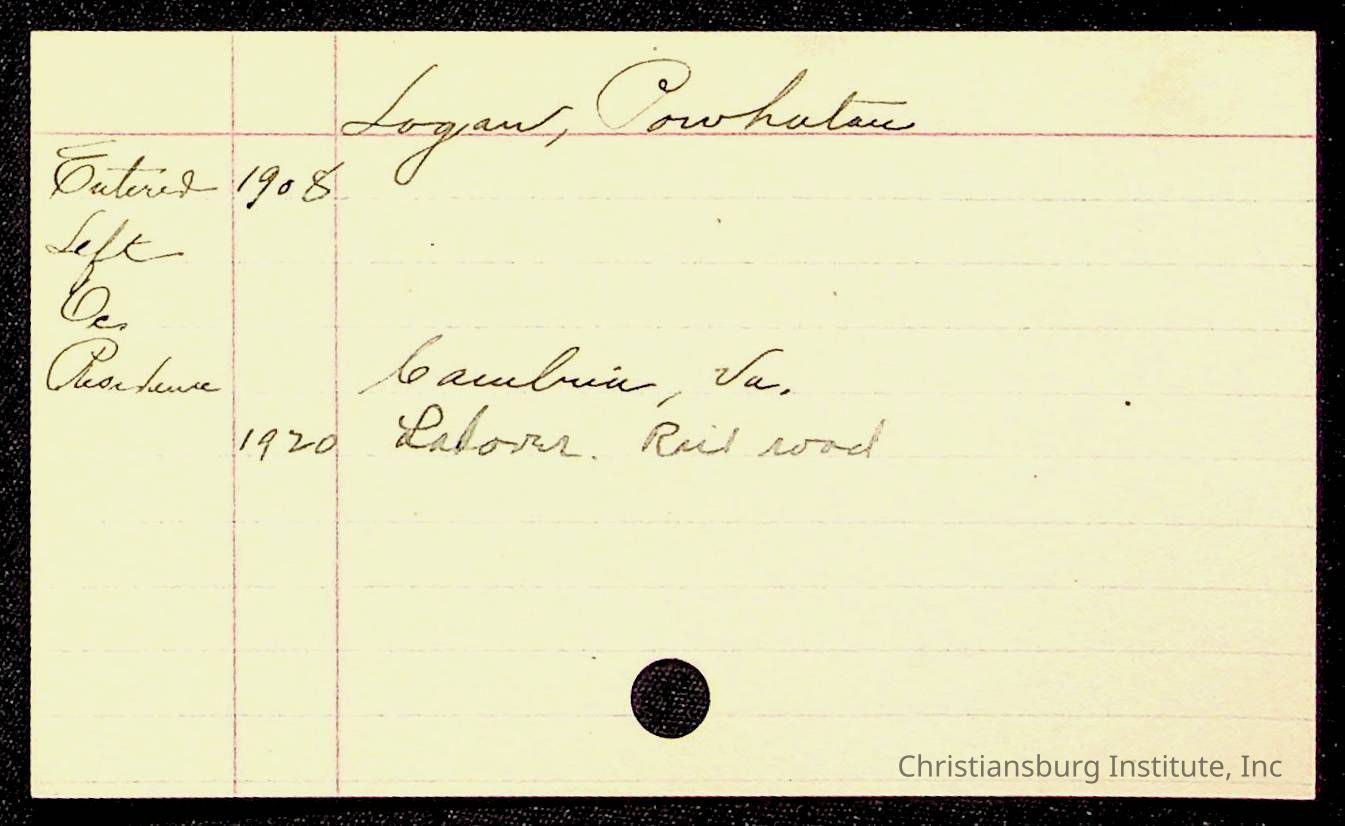 Logan, Powhatan
Entered 1908
Left
Oc.
Residence Cambria, Va.
1920 Laborer. Rail road
Christiansburg Institute, Inc